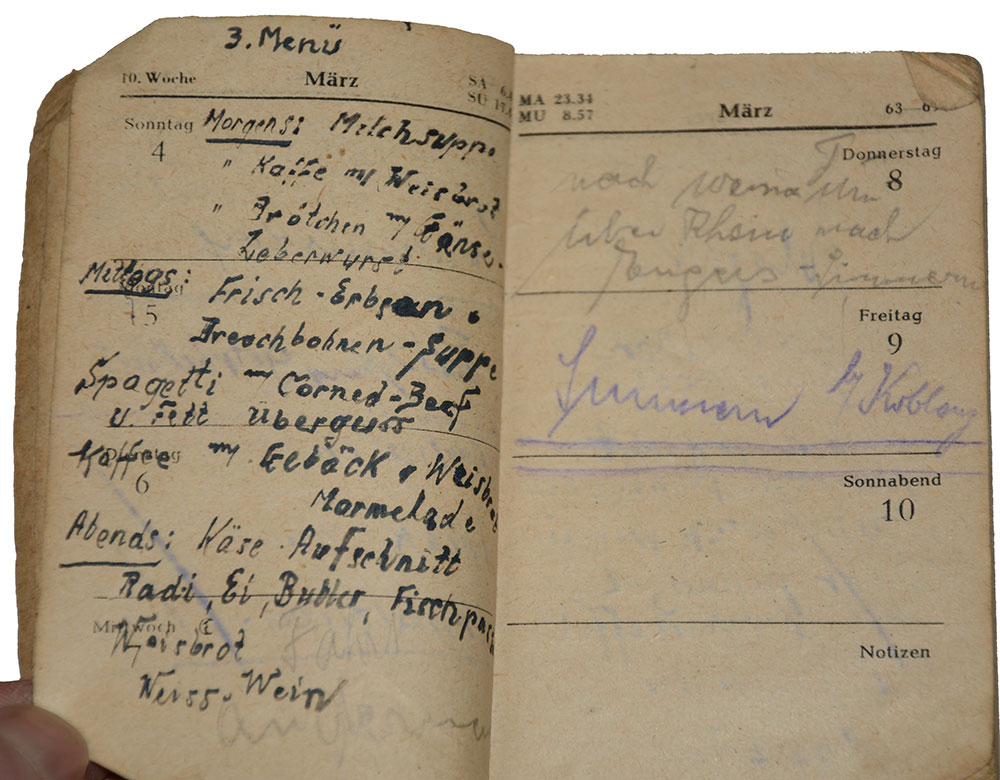 3. Menü
10. Woche März SA 6.
SU 17.
Sonntag Morgens: Milchsuppe
4
" Kaffe m/ Weisbrot
" Brötchen m/ Gänse-
Leberwurst
Mittags:
5 Frisch-Erbsen
Brechbohnen-Suppe
Spagetti m/ Corned-Beef
u. Fett überguss
Kaffee m/ Gebäck Weisbrot
6
Marmelade
Abends: Käse Aufschnitt
Radi, Ei, Butter, Fischpast
Mittwoch
Weisbrot Fahrt
Weiss-Wein
MA 23.34
MU 8.57 März 63
Donnerstag
8
nach
über Rhein nach
Engers Simmern
Freitag
9
Simmern b/ Koblenz
Sonnabend
10
Notizen